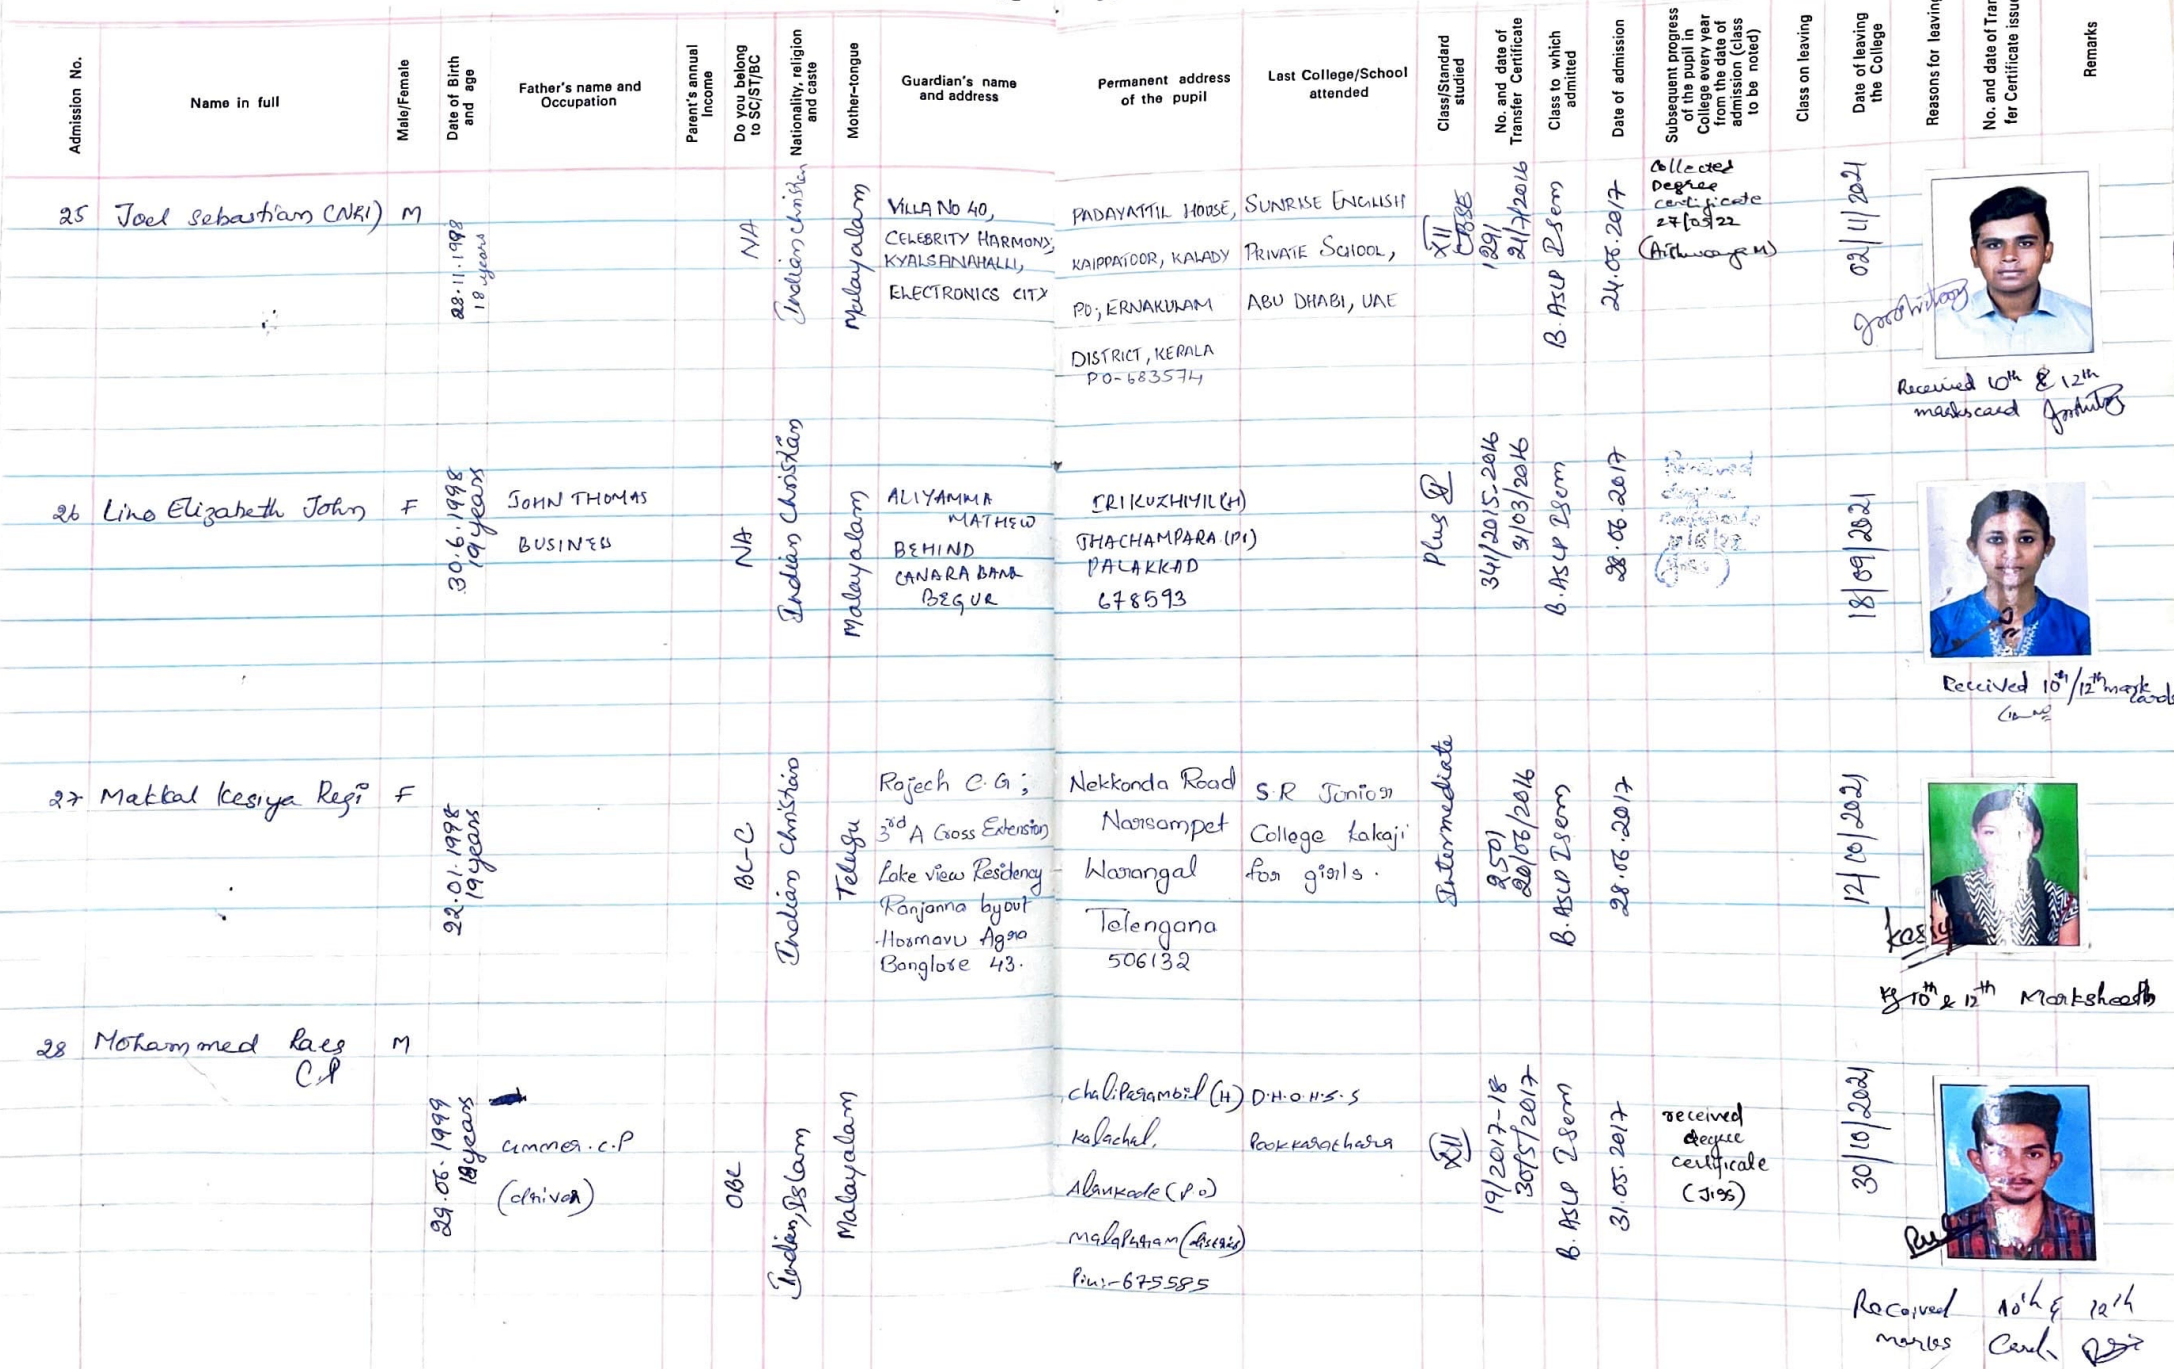 Admission No.
Name in full
Male/Female
Date of Birth
and age
Father's name and
Occupation
Parent's annual
Income
Do you belong
to SC/ST/BC
Nationality, religion
and caste
Mother-tongue
Guardian's name
and address
Permanent address
of the pupil
Last College/School
attended
Class/Standard
studied
No. and date of
Transfer Certificate
Class to which
admitted
Date of admission
Subsequent progress
of the pupil in
College every year
from the date of
admission (class
to be noted)
Class on leaving
Date of leaving
the College
Reasons for leaving
No. and date of Tran
fer Certificate issue
Remarks
25
Joel Sebastian (NRI)
M
28.11.1998
18 years
NA
Indian Christian
Malayalam
VILLA No 40,
CELEBRITY HARMONY,
KYALSANAHALLI,
ELECTRONICS CITY
PADAYATTIL HOUSE,
KAIPPATOOR, KALADY
PO, ERNAKULAM
DISTRICT, KERALA
PO-683574
SUNRISE ENGLISH
PRIVATE SCHOOL,
ABU DHABI, UAE
XII
CBSE
1291
21/7/2016
B. ASLP I Sem
24.06.2017
Collected
Degree
certificate
27/05/22
02/11/2021
Received 10th & 12th
markscard
26
Lino Elizabeth John
F
30.6.1998
19 years
JOHN THOMAS
BUSINESS
NA
Indian Christian
Malayalam
ALIYAMMA
MATHEW
BEHIND
CANARA BANK
BEGUR
IRIKUZHIYIL (H)
THACHAMPARA (PO)
PALAKKAD
678593
Plus
341/2015-2016
31/03/2016
B. ASLP I Sem
28.06.2017
Received
18/09/2021
Received 10th/12th mark
cards
27
Makkal Kesiya Regi
F
22.01.1998
19 years
BC-C
Indian Christian
Telugu
Rajech C.G;
3rd A Cross Extension
Lake view Residency
Ranjanna layout
Hormavu Agra
Banglore 43.
Nekkonda Road
Narsampet
Warangal
Telengana
506132
S.R Junior
College Kakaji
for girls.
Intermediate
2501
20/06/2016
B. ASLP I Sem
28.06.2017
12/10/2021
Kesiya
10th & 12th Marksheets
28
Mohammed Raes
C.P
M
29.06.1999
18 years
ummer.C.P
(driver)
OBC
Indian, Islam
Malayalam
Chaliparambil (H)
Kalachal,
Alankode (P.O)
Malapuram (district)
Pin:-675585
D.H.O.H.S.S
Pookkarathara
XII
19/2017-18
30/5/2017
B. ASLP I Sem
31.05.2017
received
degree
certificate
30/10/2021
Received 10th & 12th
marks Card